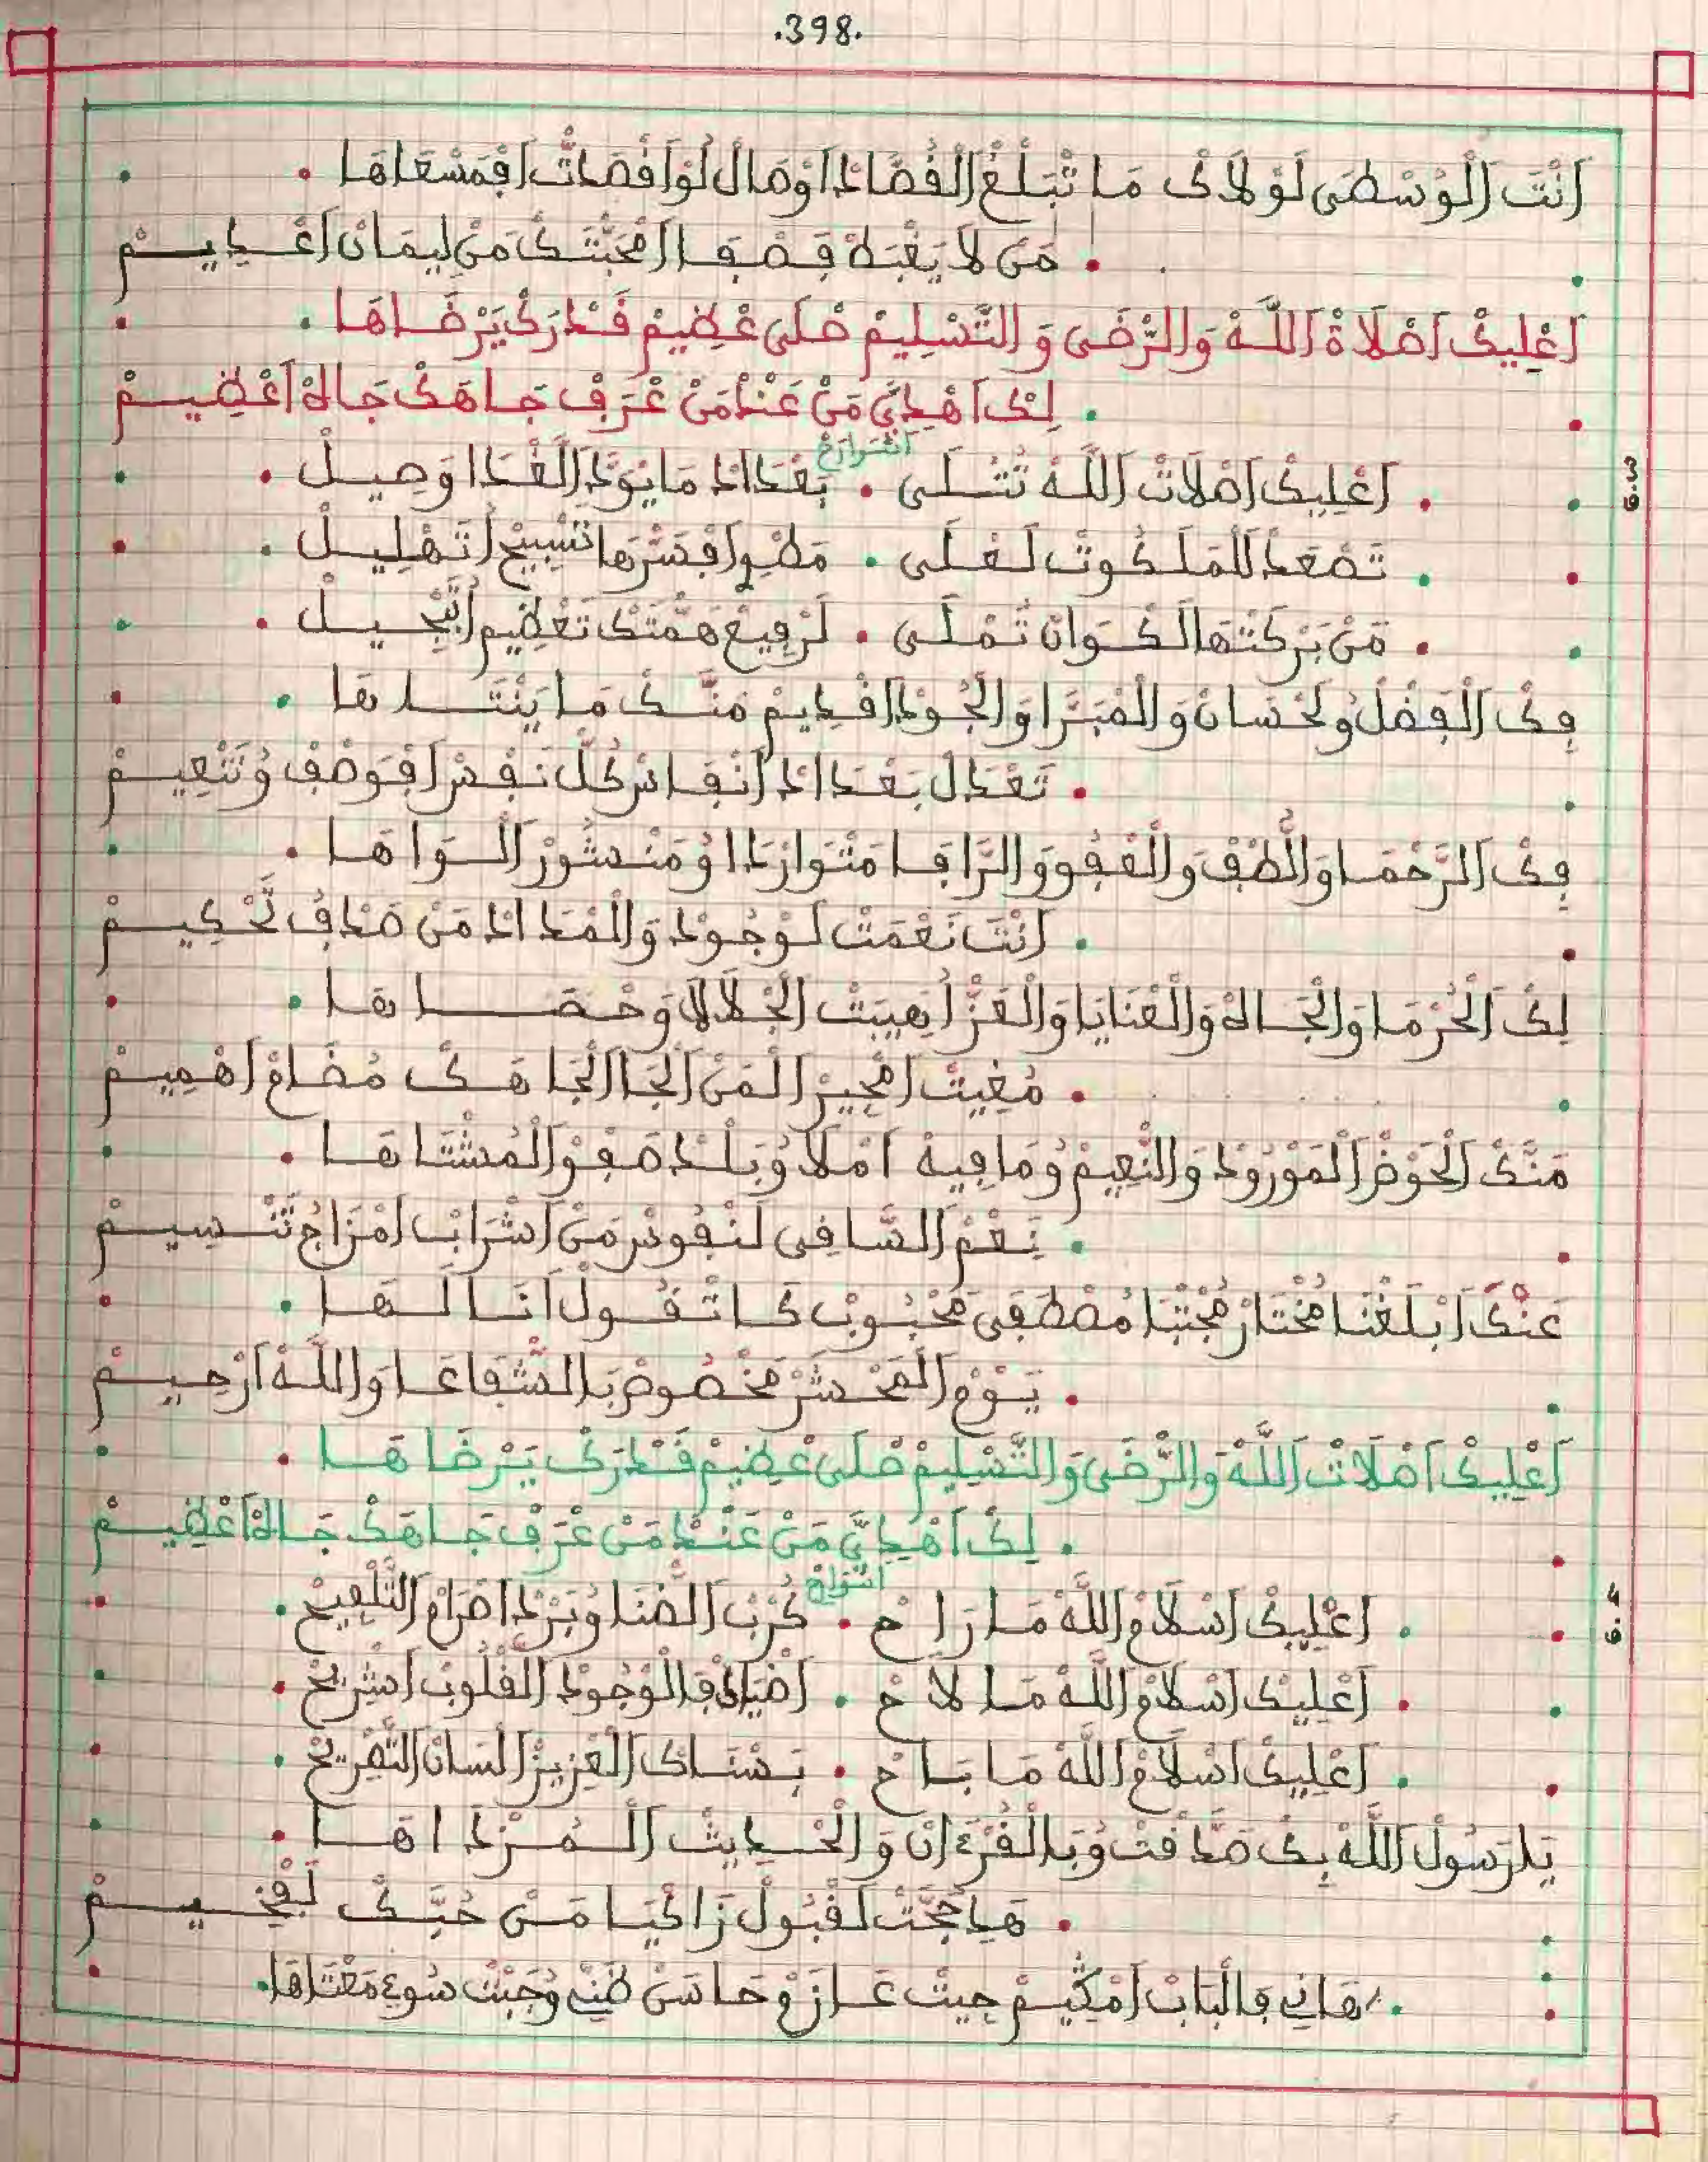 .398.
أَنْتَ الْوُسْطَى لَوْلَاكْ مَا تَبْلَغْ الْقُصَّادْ أُومَالْ لُو اقْصَاتْ افْمَسْعَاهَا
مَنْ لَا يَغْبَطْ فَصْفَا امْحَبْتَكْ مَنْ لِيمَانْ اعْدِيمْ
اعْلِيكْ اصْلَاةْ اللَّهْ وَالرّْضَى وَالتَّسْلِيمْ صَلَى عْظِيمْ قَدْرَكْ يَرْضَاهَا
لِكْ اهْدِيَّ مَنْ عَنْدْ مَنْ عْرَفْ جَاهَكْ جَاهْ اعْظِيمْ
ق.3
اشوارح
اعْلِيكْ اصْلَاتْ اللَّهْ تَتْلَى . بَعْدَادْ مَا يْوَدْ الْغْدَا وَصِيلْ
تَصْعَدْ لَلْمَلَكُوتْ لَعْلَى . مَطْوِ افْسَرْهَا تَسْبِيحْ اتَهْلِيلْ
مَنْ بَرْكَتْهَا لَكْوَانْ تَمْلَى . لَرْفِيعْ هَمَّتَكْ تَعْظِيمْ اتَبْجِيلْ
فِكْ الْفَضْلْ وُلَحْسَانْ وَالْمْبَرَّا وَالْجُودْ اقْدِيمْ مَنَّكْ مَا يَنْتَدْهَا
تَعْدَلْ بَعْدَادْ أَنْفَاسْ كُلْ نَفْسْ افْوَصْفْ وُتَنْعِيمْ
فِكْ الرَّحْمَا وَالُّطْفْ وَالْعْفُو وَالرَّافَا مَتْوَارْدَا وُمَنْشُورْ الْوَاهَا
أَنْتَ نَعْمَتْ لَوْجُودْ وَالْمْدَادْ مَنْ صَدْفْ تَحْكِيمْ
لِكْ الْحُرْمَا وَالْجَاهْ وَالْعْنَايَا وَالْعَزْ أُهِيبَتْ الْجْلَالَا وَحْصَاهَا
مُغِيتْ امْجِيرْ الْمَنْ الْجَا الْجَاهَكْ مُضَامْ اهْمِيمْ
مَنَّكْ الْحَوْضْ الْمَوْرُودْ وَالنّْعِيمْ وُمَا فِيهْ امْلَا وُبَلْدْ صَفْوْ الْمُشْتَاهَا
نَعْمْ السَّاقِي لَنْفُوسْ مَنْ اشْرَابْ امْزَاجْ تَسْنِيمْ
عَنْكْ ابْلَغْنَا مُخْتَارْ مُجْتْبَا مُصْطَفَى مَحْبُوبْ كَا تْقُولْ انَا لَهَا
يَوْمْ الْمَحْشَرْ مَخْصُوصْ بَالشّْفَاعَا وَاللَّهْ ارْحِيمْ
اعْلِيكْ اصْلَاتْ اللَّهْ وَالرّْضَى وَالتَّسْلِيمْ صْلَى عْظِيمْ قَدْرَكْ يَرْضَاهَا
لِكْ اهْدِيَّ مَنْ عَنْدْ مَنْ عْرَفْ جَاهَكْ جَاهْ اعْظِيمْ
ق.4
اشوارح
اعْلِيكْ اسْلَامْ اللَّهْ مَا رَاحْ . كُرْبْ الضّْنَا وُبَرْدْ اضْرَامْ التَّلْفِيحْ
اعْلِيكْ اسْلَامْ اللَّهْ مَا لَاحْ . اضْيَاكْ فَالْوْجُودْ الْقْلُوبْ اشْرِيحْ
اعْلِيكْ اسْلَامْ اللَّهْ مَا بَاحْ . بَسْنَاكْ الْعْزِيزْ لَسَانْ التَّصْرِيحْ
يَا رَسُولْ اللَّهْ بِكْ صَدَّقْتْ وُبَالْقُرْءَانْ وَالْحْدِيثْ الْمُزْدَاهَا
هَدِ حُجَّتْ لَقْبُولْ زَاكْيَا مَنْ حُبَّكْ لَفْخِيمْ
هَانِي فَالْبَابْ امْكِيمْ جِيتْ عَازَمْ وَحَاسَنْ ظَنِّي وُجَبْتْ سُوءْ مَعْتَاهَا